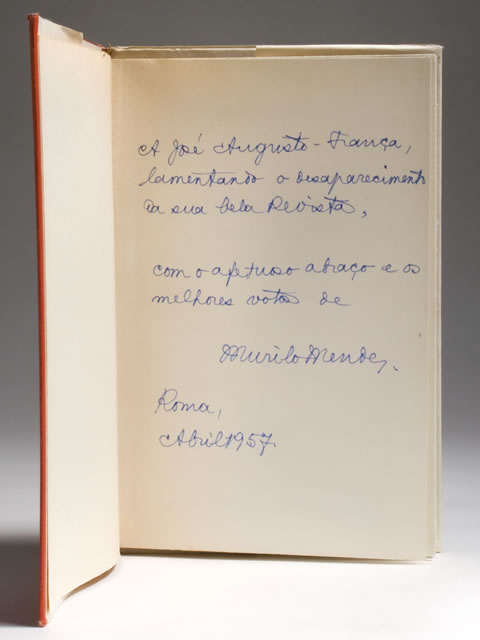 A José Augusto-França,
lamentando o desaparecimento
da sua bela Revista,
com o afetuoso abraço e os
melhores votos de
Murilo Mendes.
Roma,
Abril 1957.